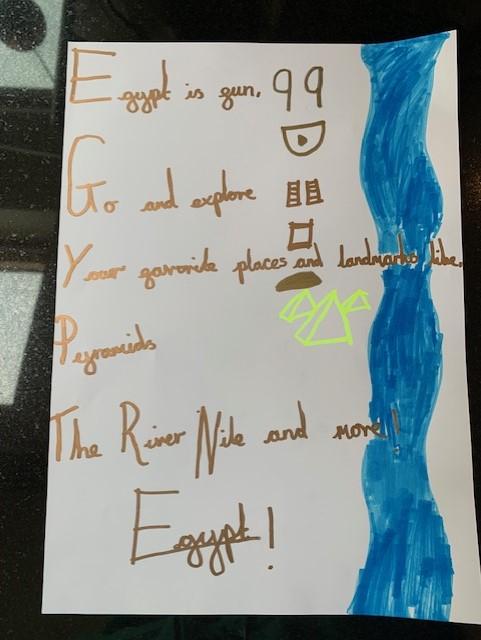 Egypt is fun,
Go and explore
Your favorite places and landmarks like,
Pyramids
The River Nile and more!
Egypt!